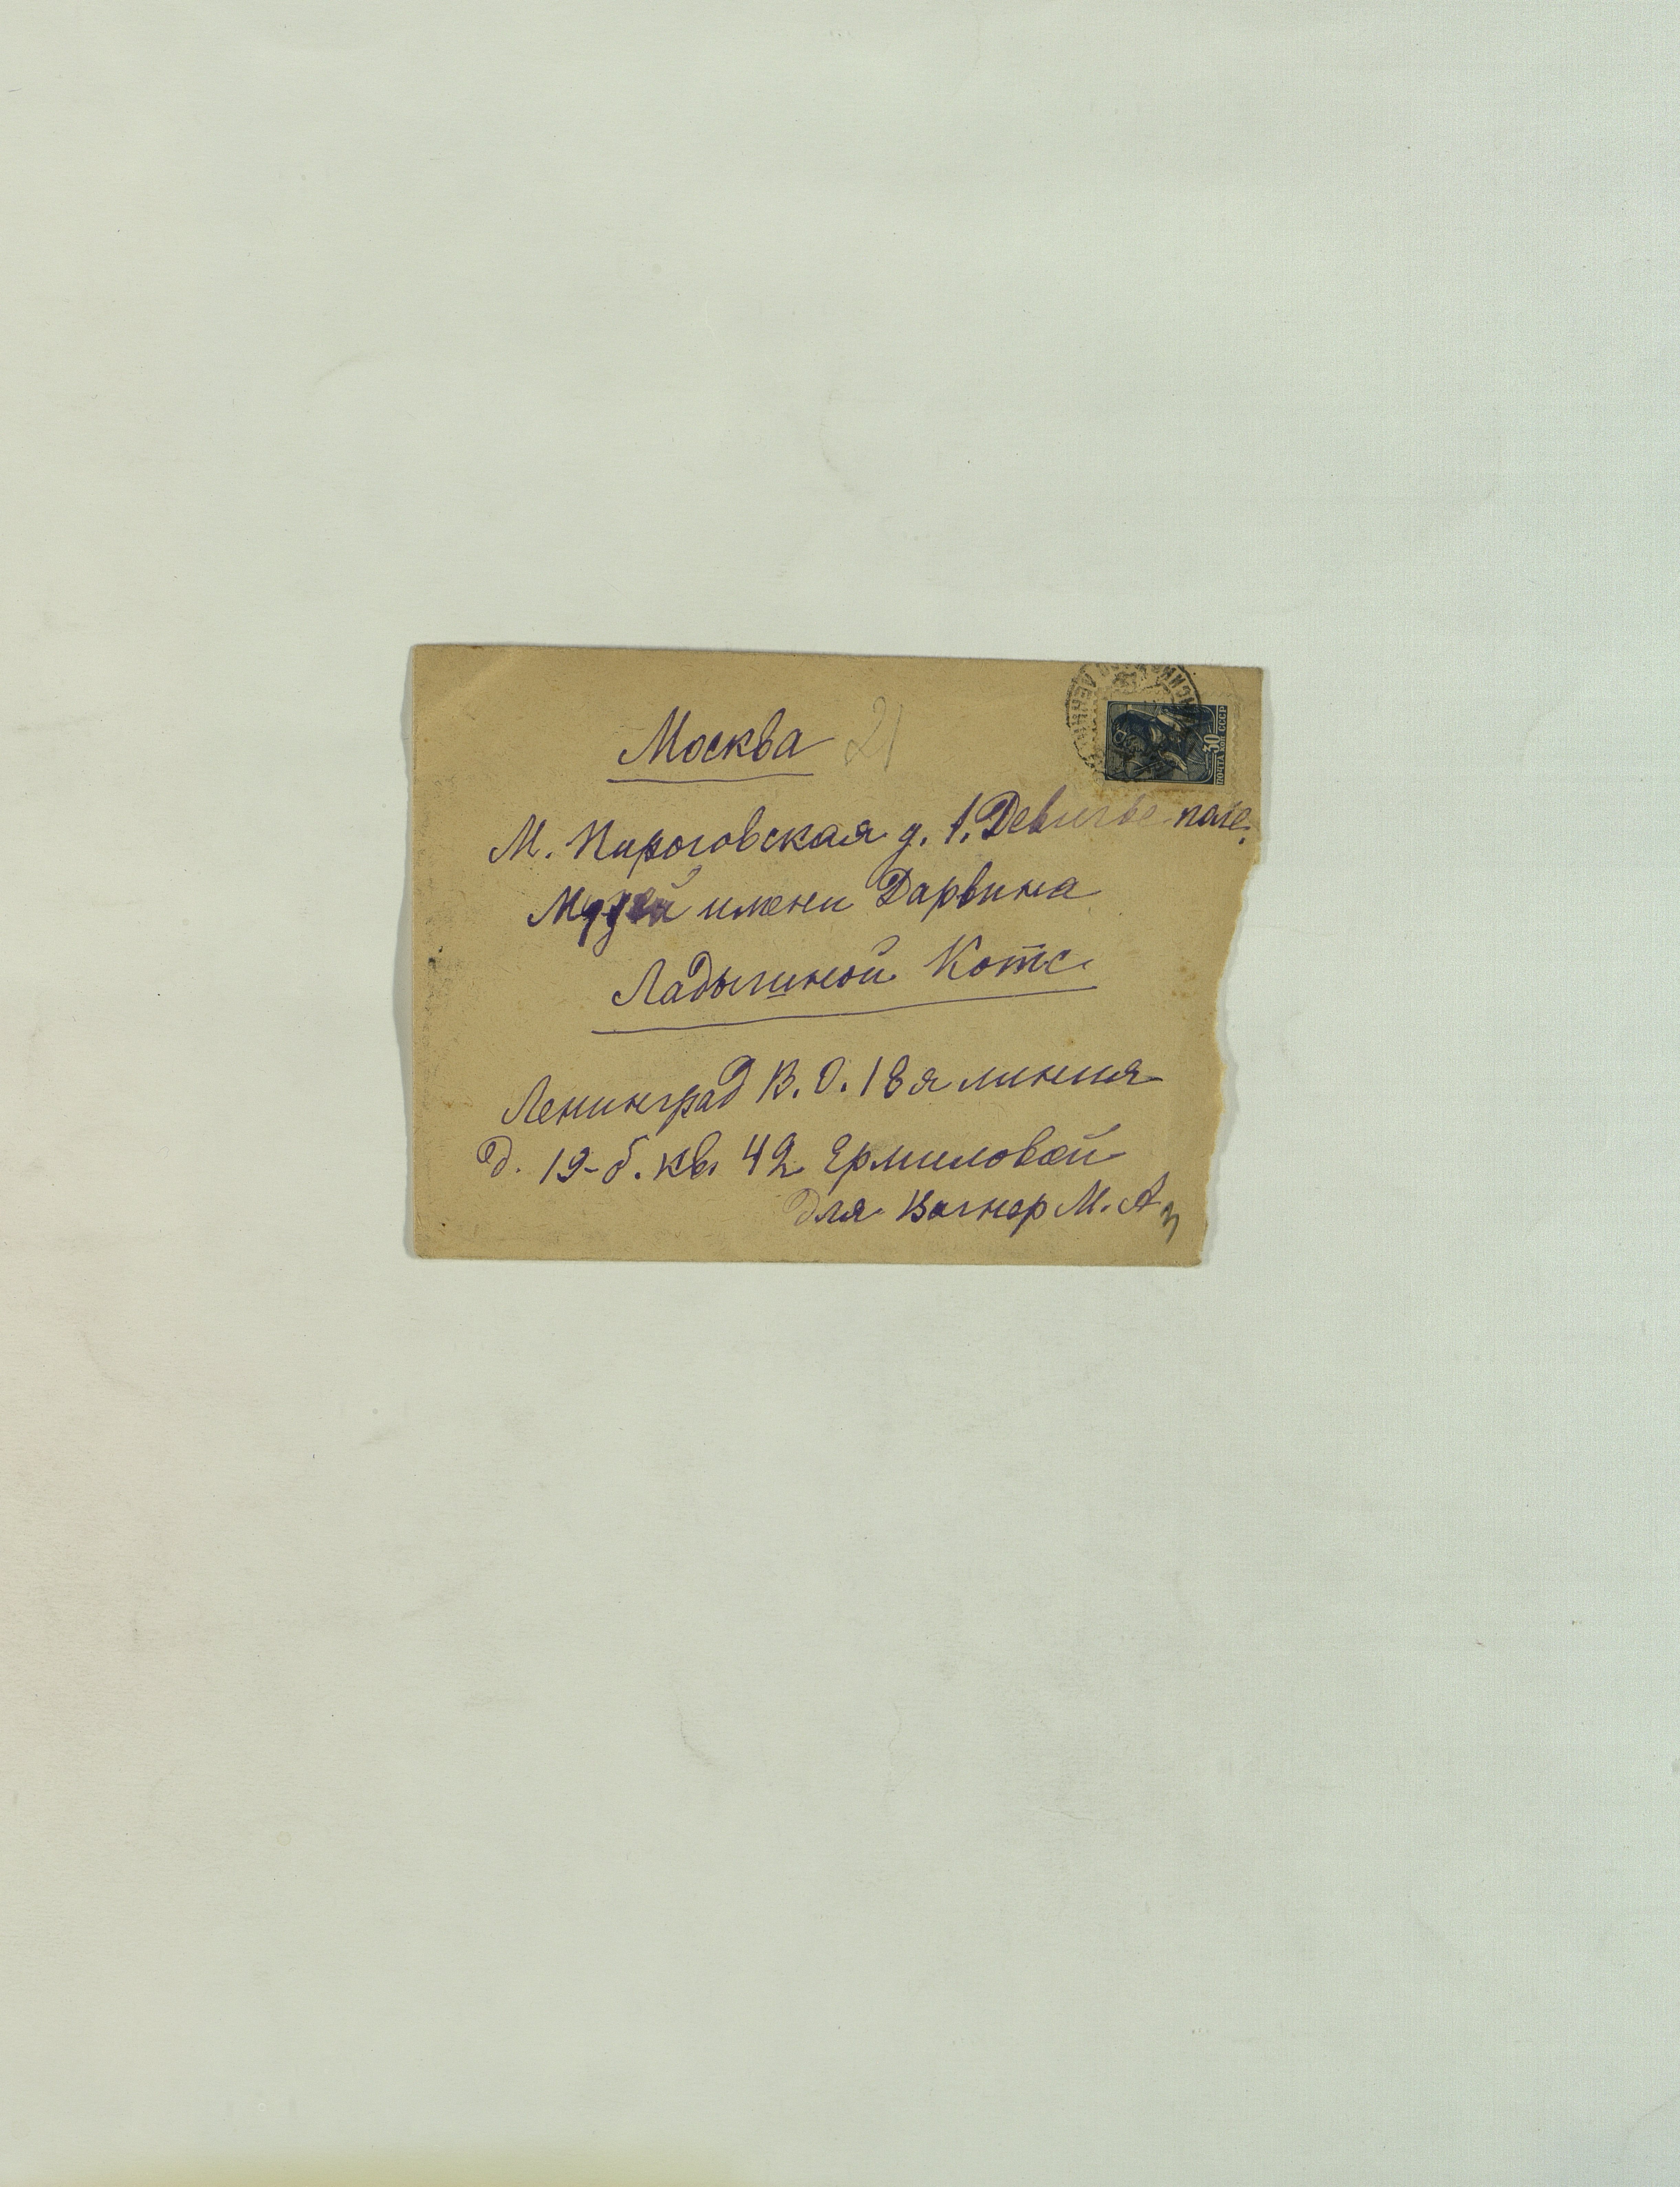 Москва 21
М. Пироговская д. 1. Девичье поле.
Музей имени Дарвина
Ладыгиной Котс
Ленинград В. О. 18 я линия
д. 19-б. кв. 42 Ермиловой
для Вагнер М. А.
30
ПОЧТА КОП СССР